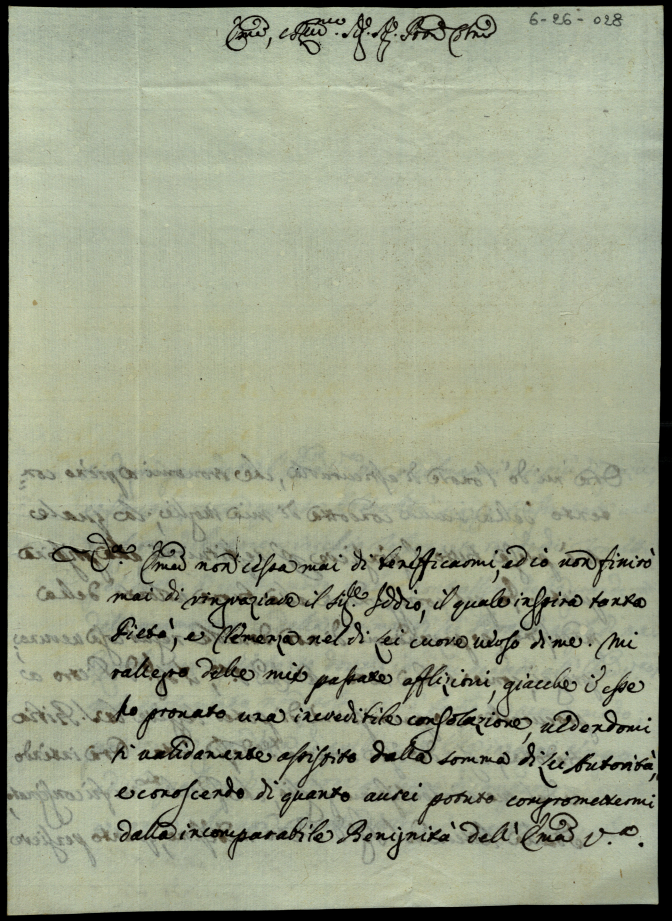 6-26-028
Em̃o, e Rmo. Sig. Sig. Pron Colmo
V.ra Em̃a non cessa mai di beneficarmi, ed io non finirò
mai di ringraziare il Sig.re Iddio, il quale inspira tanta
Pietà, e Clemenza nel di Lei cuore verso di me. Mi
rallegro delle mie passate afflizioni, giacche in esse
ho provato una incredibile consolazione, vedendomi
sì validamente assistito dalla somma di Lei Autorità,
e conoscendo di quanto avrei potuto compromettermi
dalla incomparabile Benignità dell' Em̃a V.ra.